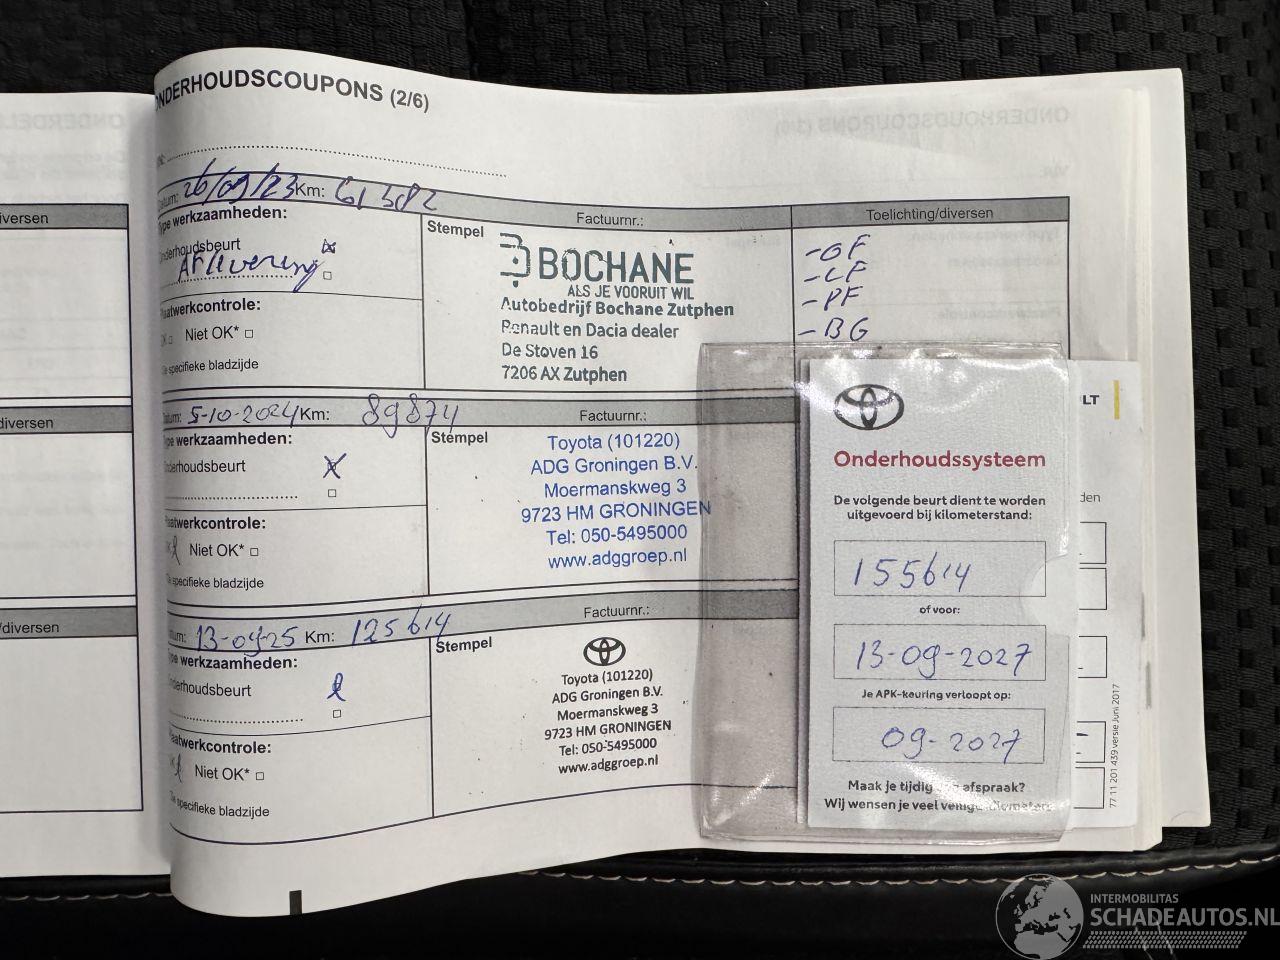 ONDERHOUDSCOUPONS (2/6)
Datum: 26/09/23 Km: 61382
Type werkzaamheden:
Onderhoudsbeurt
Aflevering
Plaatwerkcontrole:
Niet OK*
specifieke bladzijde
Factuurnr.:
Stempel
BOCHANE
ALS JE VOORUIT WIL
Autobedrijf Bochane Zutphen
Renault en Dacia dealer
De Stoven 16
7206 AX Zutphen
Toelichting/diversen
-OF
-LF
-PF
-BG
Datum: 5-10-2024 Km: 89874
Type werkzaamheden:
Onderhoudsbeurt
Plaatwerkcontrole:
Niet OK*
specifieke bladzijde
Factuurnr.:
Stempel
Toyota (101220)
ADG Groningen B.V.
Moermanskweg 3
9723 HM GRONINGEN
Tel: 050-5495000
www.adggroep.nl
Datum: 13-09-25 Km: 125614
Type werkzaamheden:
Onderhoudsbeurt
Plaatwerkcontrole:
Niet OK*
specifieke bladzijde
Factuurnr.:
Stempel
Toyota (101220)
ADG Groningen B.V.
Moermanskweg 3
9723 HM GRONINGEN
Tel: 050-5495000
www.adggroep.nl
Onderhoudssysteem
De volgende beurt dient te worden
uitgevoerd bij kilometerstand:
155614
of voor:
13-09-2027
Je APK-keuring verloopt op:
09-2027
Maak je tijdig afspraak?
Wij wensen je veel veilige kilometers
LT
den
77 11 201 439 versie Juni 2017
diversen
diversen
/diversen
INTERMOBILITAS
SCHADEAUTOS.NL